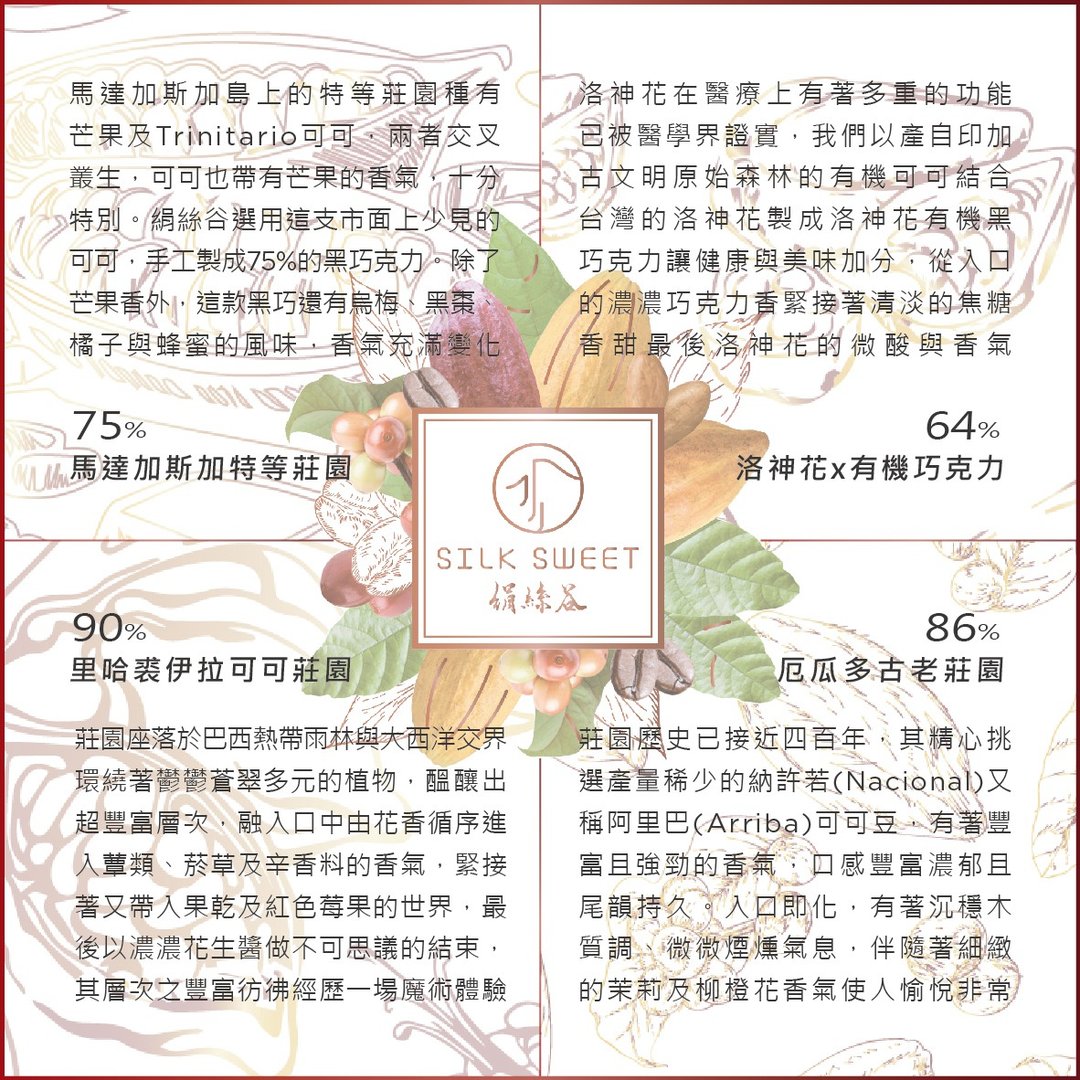 馬達加斯加島上的特等莊園種有
芒果及Trinitario可可，兩者交叉
叢生，可可也帶有芒果的香氣，十分
特別。絹絲谷選用這支市面上少見的
可可，手工製成75%的黑巧克力。除了
芒果香外，這款黑巧還有烏梅、黑棗、
橘子與蜂蜜的風味，香氣充滿變化
75%
馬達加斯加特等莊園
洛神花在醫療上有著多重的功能
已被醫學界證實，我們以產自印加
古文明原始森林的有機可可結合
台灣的洛神花製成洛神花有機黑
巧克力讓健康與美味加分，從入口
的濃濃巧克力香緊接著清淡的焦糖
香甜最後洛神花的微酸與香氣
64%
洛神花x有機巧克力
SILK SWEET
絹絲谷
90%
里哈裘伊拉可可莊園
莊園座落於巴西熱帶雨林與大西洋交界
環繞著鬱鬱蒼翠多元的植物，醞釀出
超豐富層次，融入口中由花香循序進
入蕈類、菸草及辛香料的香氣，緊接
著又帶入果乾及紅色莓果的世界，最
後以濃濃花生醬做不可思議的結束，
其層次之豐富彷彿經歷一場魔術體驗
86%
厄瓜多古老莊園
莊園歷史已接近四百年，其精心挑
選產量稀少的納許若(Nacional)又
稱阿里巴(Arriba)可可豆，有著豐
富且強勁的香氣，口感豐富濃郁且
尾韻持久。入口即化，有著沉穩木
質調、微微煙燻氣息，伴隨著細緻
的茉莉及柳橙花香氣使人愉悅非常